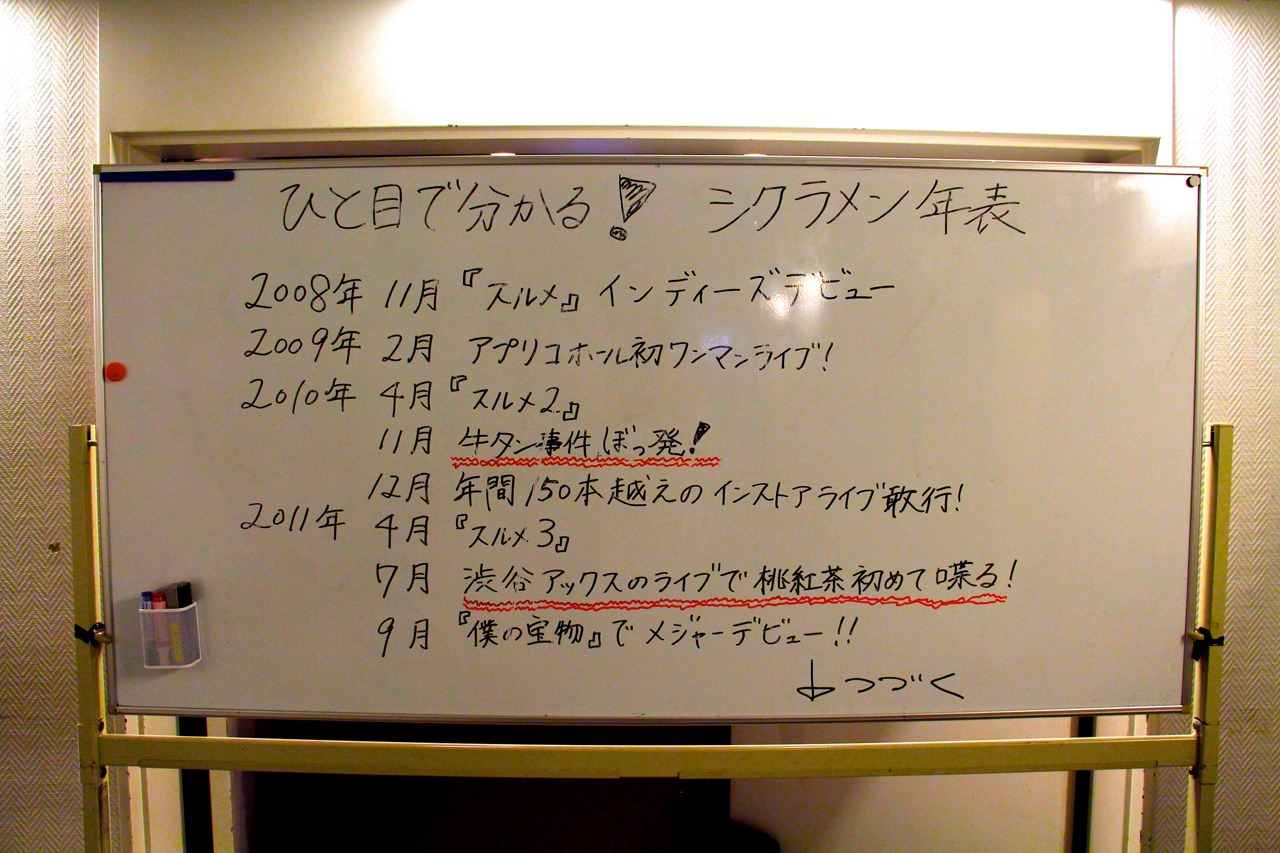 ひと目で分かる! シクラメン年表
2008年 11月 『スルメ』 インディーズデビュー
2009年 2月 アプリコホール初ワンマンライブ!
2010年 4月 『スルメ2』
11月 牛タン事件ぼっ発!
12月 年間150本越えのインストアライブ敢行!
2011年 4月 『スルメ3』
7月 渋谷アックスのライブで桃紅茶初めて喋る!
9月 『僕の宝物』でメジャーデビュー!!
↓つづく